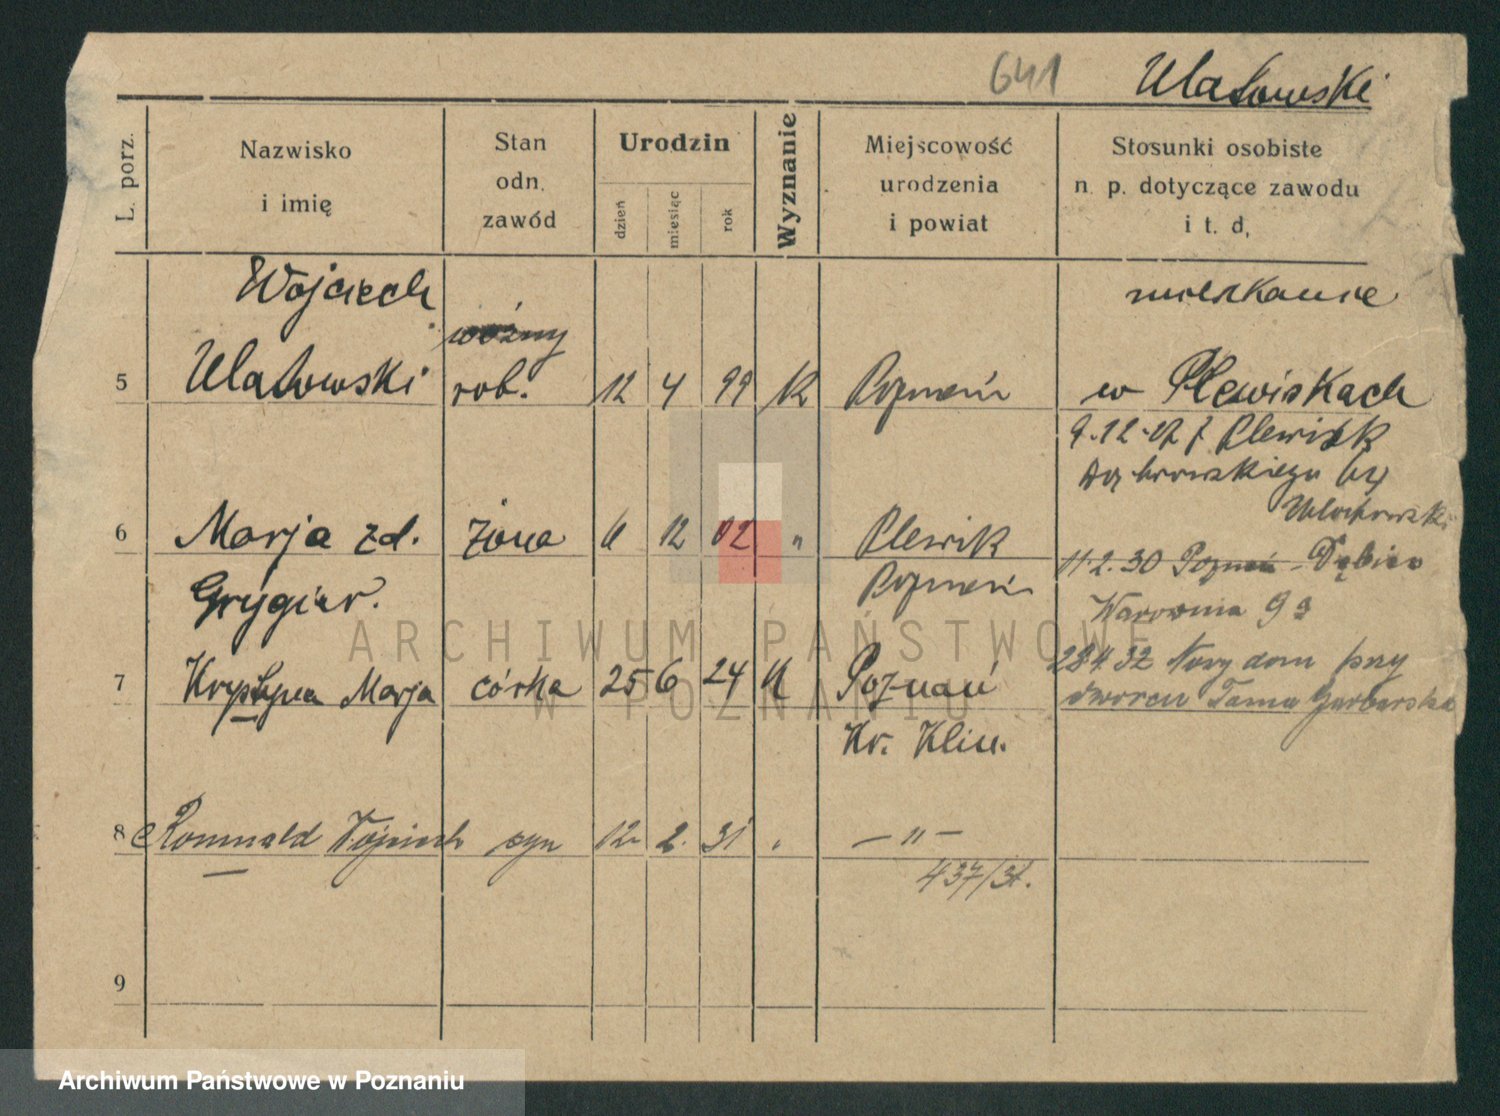 641 Ulatowski
L. porz.
Nazwisko
i imię
Stan
odn.
zawód
Urodzin
dzień
miesiąc
rok
Wyznanie
Miejscowość
urodzenia
i powiat
Stosunki osobiste
n. p. dotyczące zawodu
i t. d.
Wojciech mieszkanie
woźny
5 Ulatowski rob. 12 4 99 K Poznań w Plewiskach
Plewisk
6 Marja zd. żona 12 02 " Plewisk
11.2.30 Poznań - Dębiec
Grygier. Poznań
Warownia 9a
7 Krystyna Marja córka 25 6 24 K Poznań
28.4.32 Nowy dom przy
dworcu Tama Garbarska
Kr. Klin.
8 Romuald Wojciech syn 12. 2. 31 " — " —
437/31.
9
ARCHIWUM PAŃSTWOWE
W POZNANIU
Archiwum Państwowe w Poznaniu